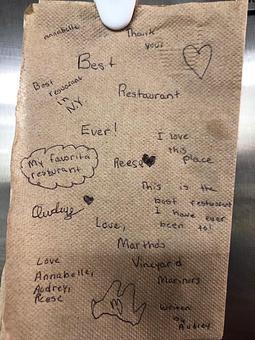 annabelle
Thank
you!
Best
Best
resturant
in
N.Y.
Restaurant
Ever!
I love
this
place
My favorite
resturant
Reese
This is the
best restaurant
I have ever
been to!
Audrey
Love,
Marthas
Vineyard
Mariners
Love
Annabelle,
Audrey,
Reese
M
Written
by
Audrey